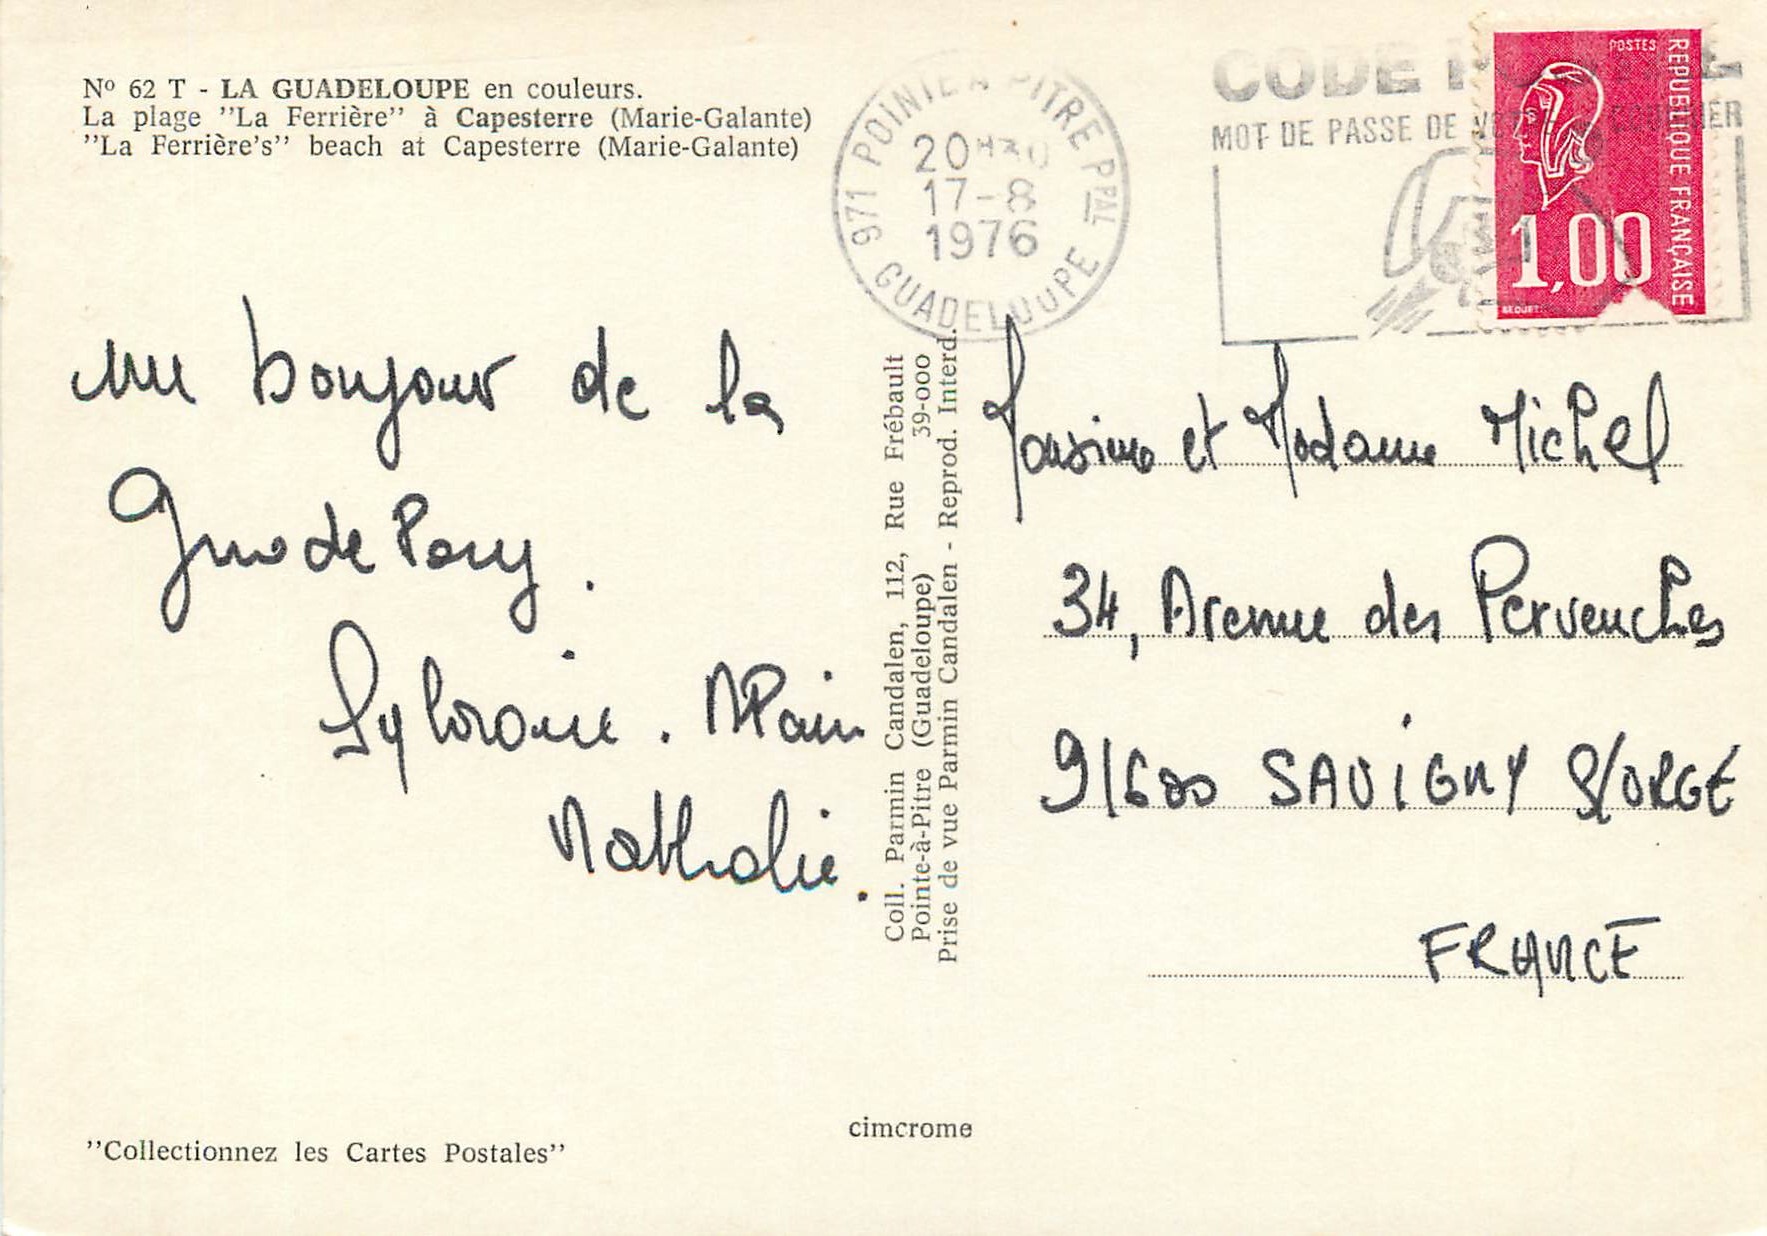 Nº 62 T - LA GUADELOUPE en couleurs.
La plage "La Ferrière" à Capesterre (Marie-Galante)
"La Ferrière's" beach at Capesterre (Marie-Galante)
un bonjour de la
Guadeloup.
Sylvaine. Alain
Nathalie.
"Collectionnez les Cartes Postales"
Coll. Parmin Candalen, 112, Rue Frébault
Pointe-à-Pitre (Guadeloupe) 39-000
Prise de vue Parmin Candalen - Reprod. Interd.
cimcrome
971 POINTE A PITRE PPAL
20H30
17-8
1976
GUADELOUPE
CODE
MOT DE PASSE DE
POSTES
REPUBLIQUE FRANÇAISE
1,00
BEQUET
Monsieur et Madame Michel
34, Avenue des Pervenches
91600 SAVIGNY S/ORGE
FRANCE